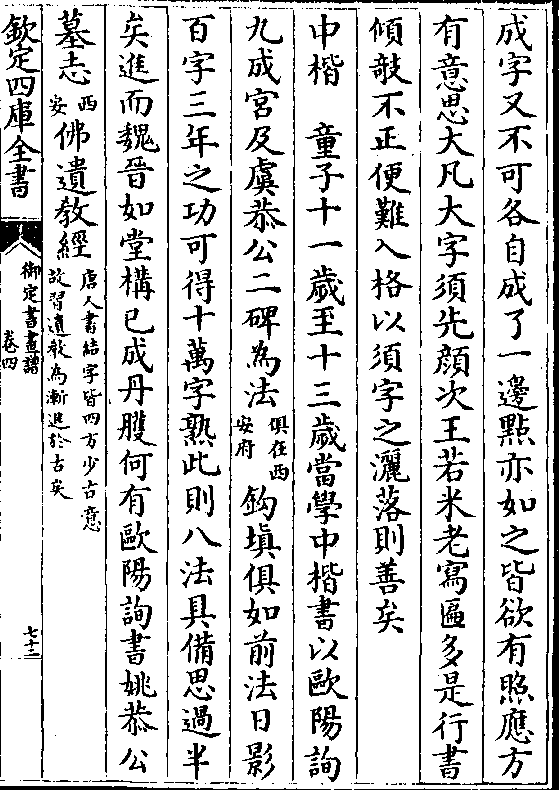 成字又不可各自成了一邊點亦如之皆欲有照應方
有意思大凡大字須先顔次王若米老寫匾多是行書
傾攲不正便難入格以須字之灑落則善矣
中楷　童子十一歲至十三歲當學中楷書以歐陽詢
九成宮及虞恭公二碑為法俱在西安府鈎塡俱如前法日影
百字三年之功可得十萬字熟此則八法具備思過半
矣進而魏晉如堂構已成丹雘何有歐陽詢書姚恭公
墓志西安佛遺教經唐人書結字皆四方少古意故習遺教為漸進於古矣
欽定四庫全書
御定書畫譜
卷四
七十二